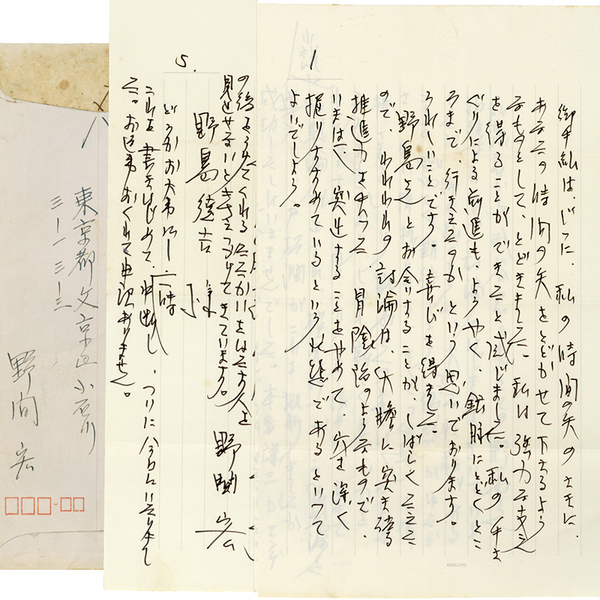 1
御手紙は、じつに、私の時間の矢のさきに、
あなたの時間の矢をとどかせて下さるよう
なものとして、とどきました。私は強力な支え
を得ることができたと感じました。私の手さ
ぐりによる前進も、ようやく、鉱脈にとどくとこ
ろまで、行きえたのかという思いであります。
うれしいことです。喜びを得ました。
野島さんとお会いすることが、しばらくたえた
ので、われわれの討論は、大膽に突き磅
推進力を失って、冒険隊のようなもので、
いまは、突進することをやめて、穴を深く
掘りすすめているという状態であるといって
よいでしょう。
5.
見せないときさえつづけてきています。
野間宏
野島徳吉様
どうかお大事に
これを書きはじめて、中断し、ついに今日にいたりまし
た。お返事おくれて申訳ありません。
東京都文京区小石川
三-一三-三
野間宏